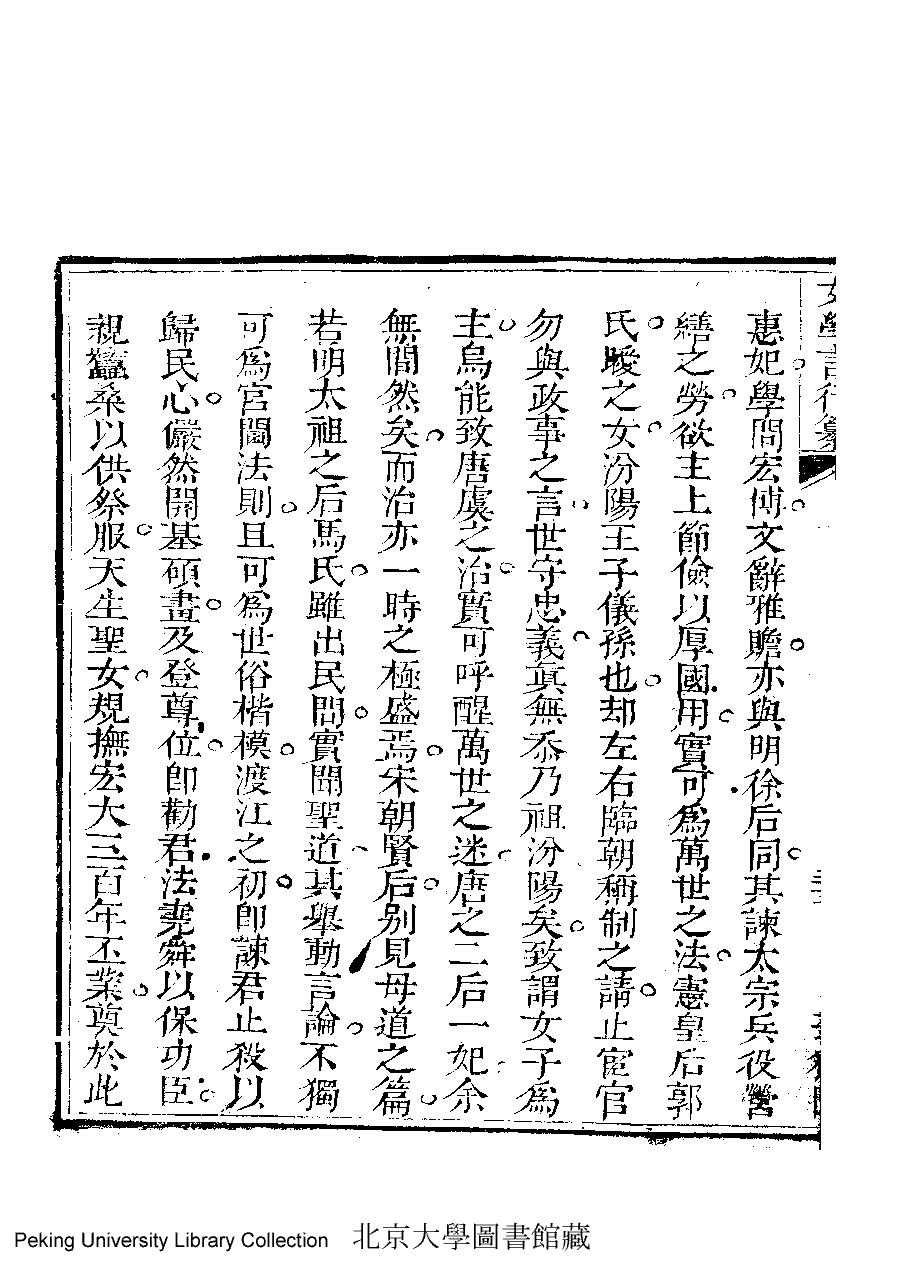 女學言行纂
惠妃學問宏博文辭雅贍亦與明徐后同其諫太宗兵役營
繕之勞欲主上節儉以厚國用實可為萬世之法憲皇后郭
氏曖之女汾陽王子儀孫也却左右臨朝稱制之請止宦官
勿與政事之言世守忠義真無忝乃祖汾陽矣致謂女子為
主烏能致唐虞之治實可呼醒萬世之迷唐之二后一妃余
無間然矣而治亦一時之極盛焉宋朝賢后別見母道之篇
若明太祖之后馬氏雖出民間實聞聖道其舉動言論不獨
可為宮闈法則且可為世俗楷模渡江之初即諫君止殺以
歸民心儼然開基碩畫及登尊位即勸君法堯舜以保功臣
親蠶桑以供祭服天生聖女規撫宏大三百年丕業奠於此
Peking University Library Collection 北京大學圖書館藏